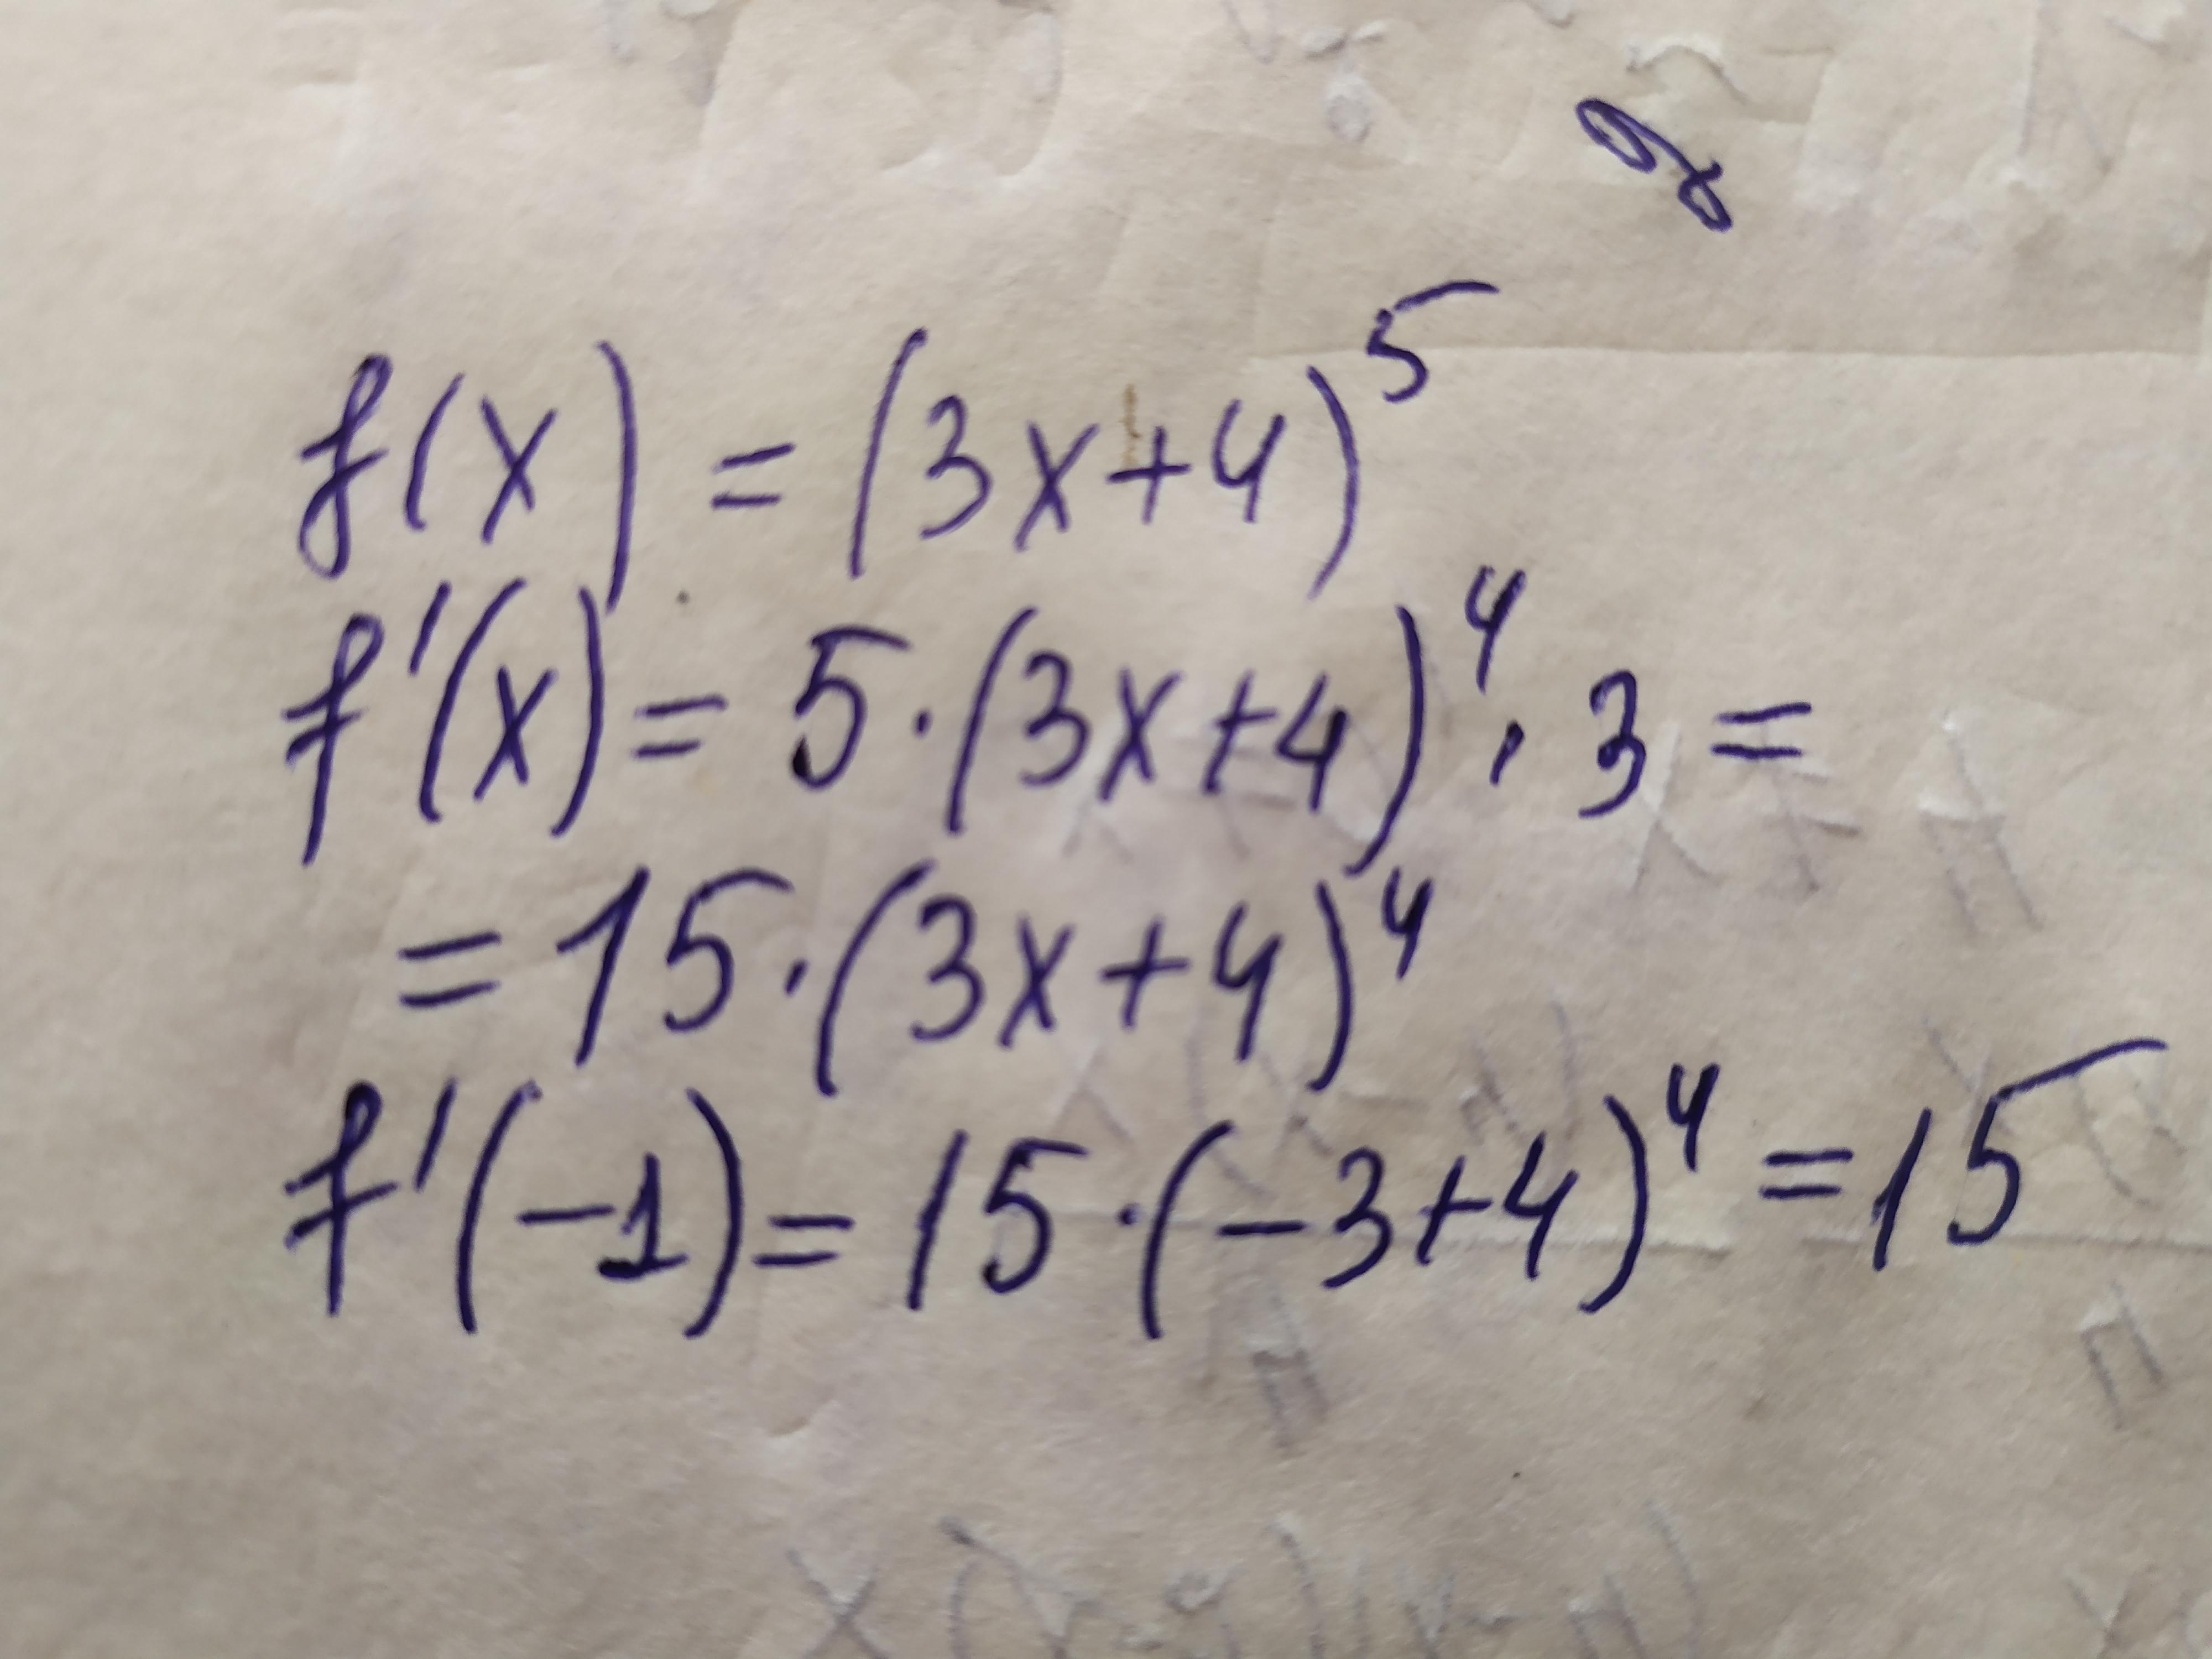 f(x) = (3x+4)⁵
f'(x) = 5·(3x+4)⁴·3=
=15·(3x+4)⁴
f'(-1)=15·(-3+4)⁴=15